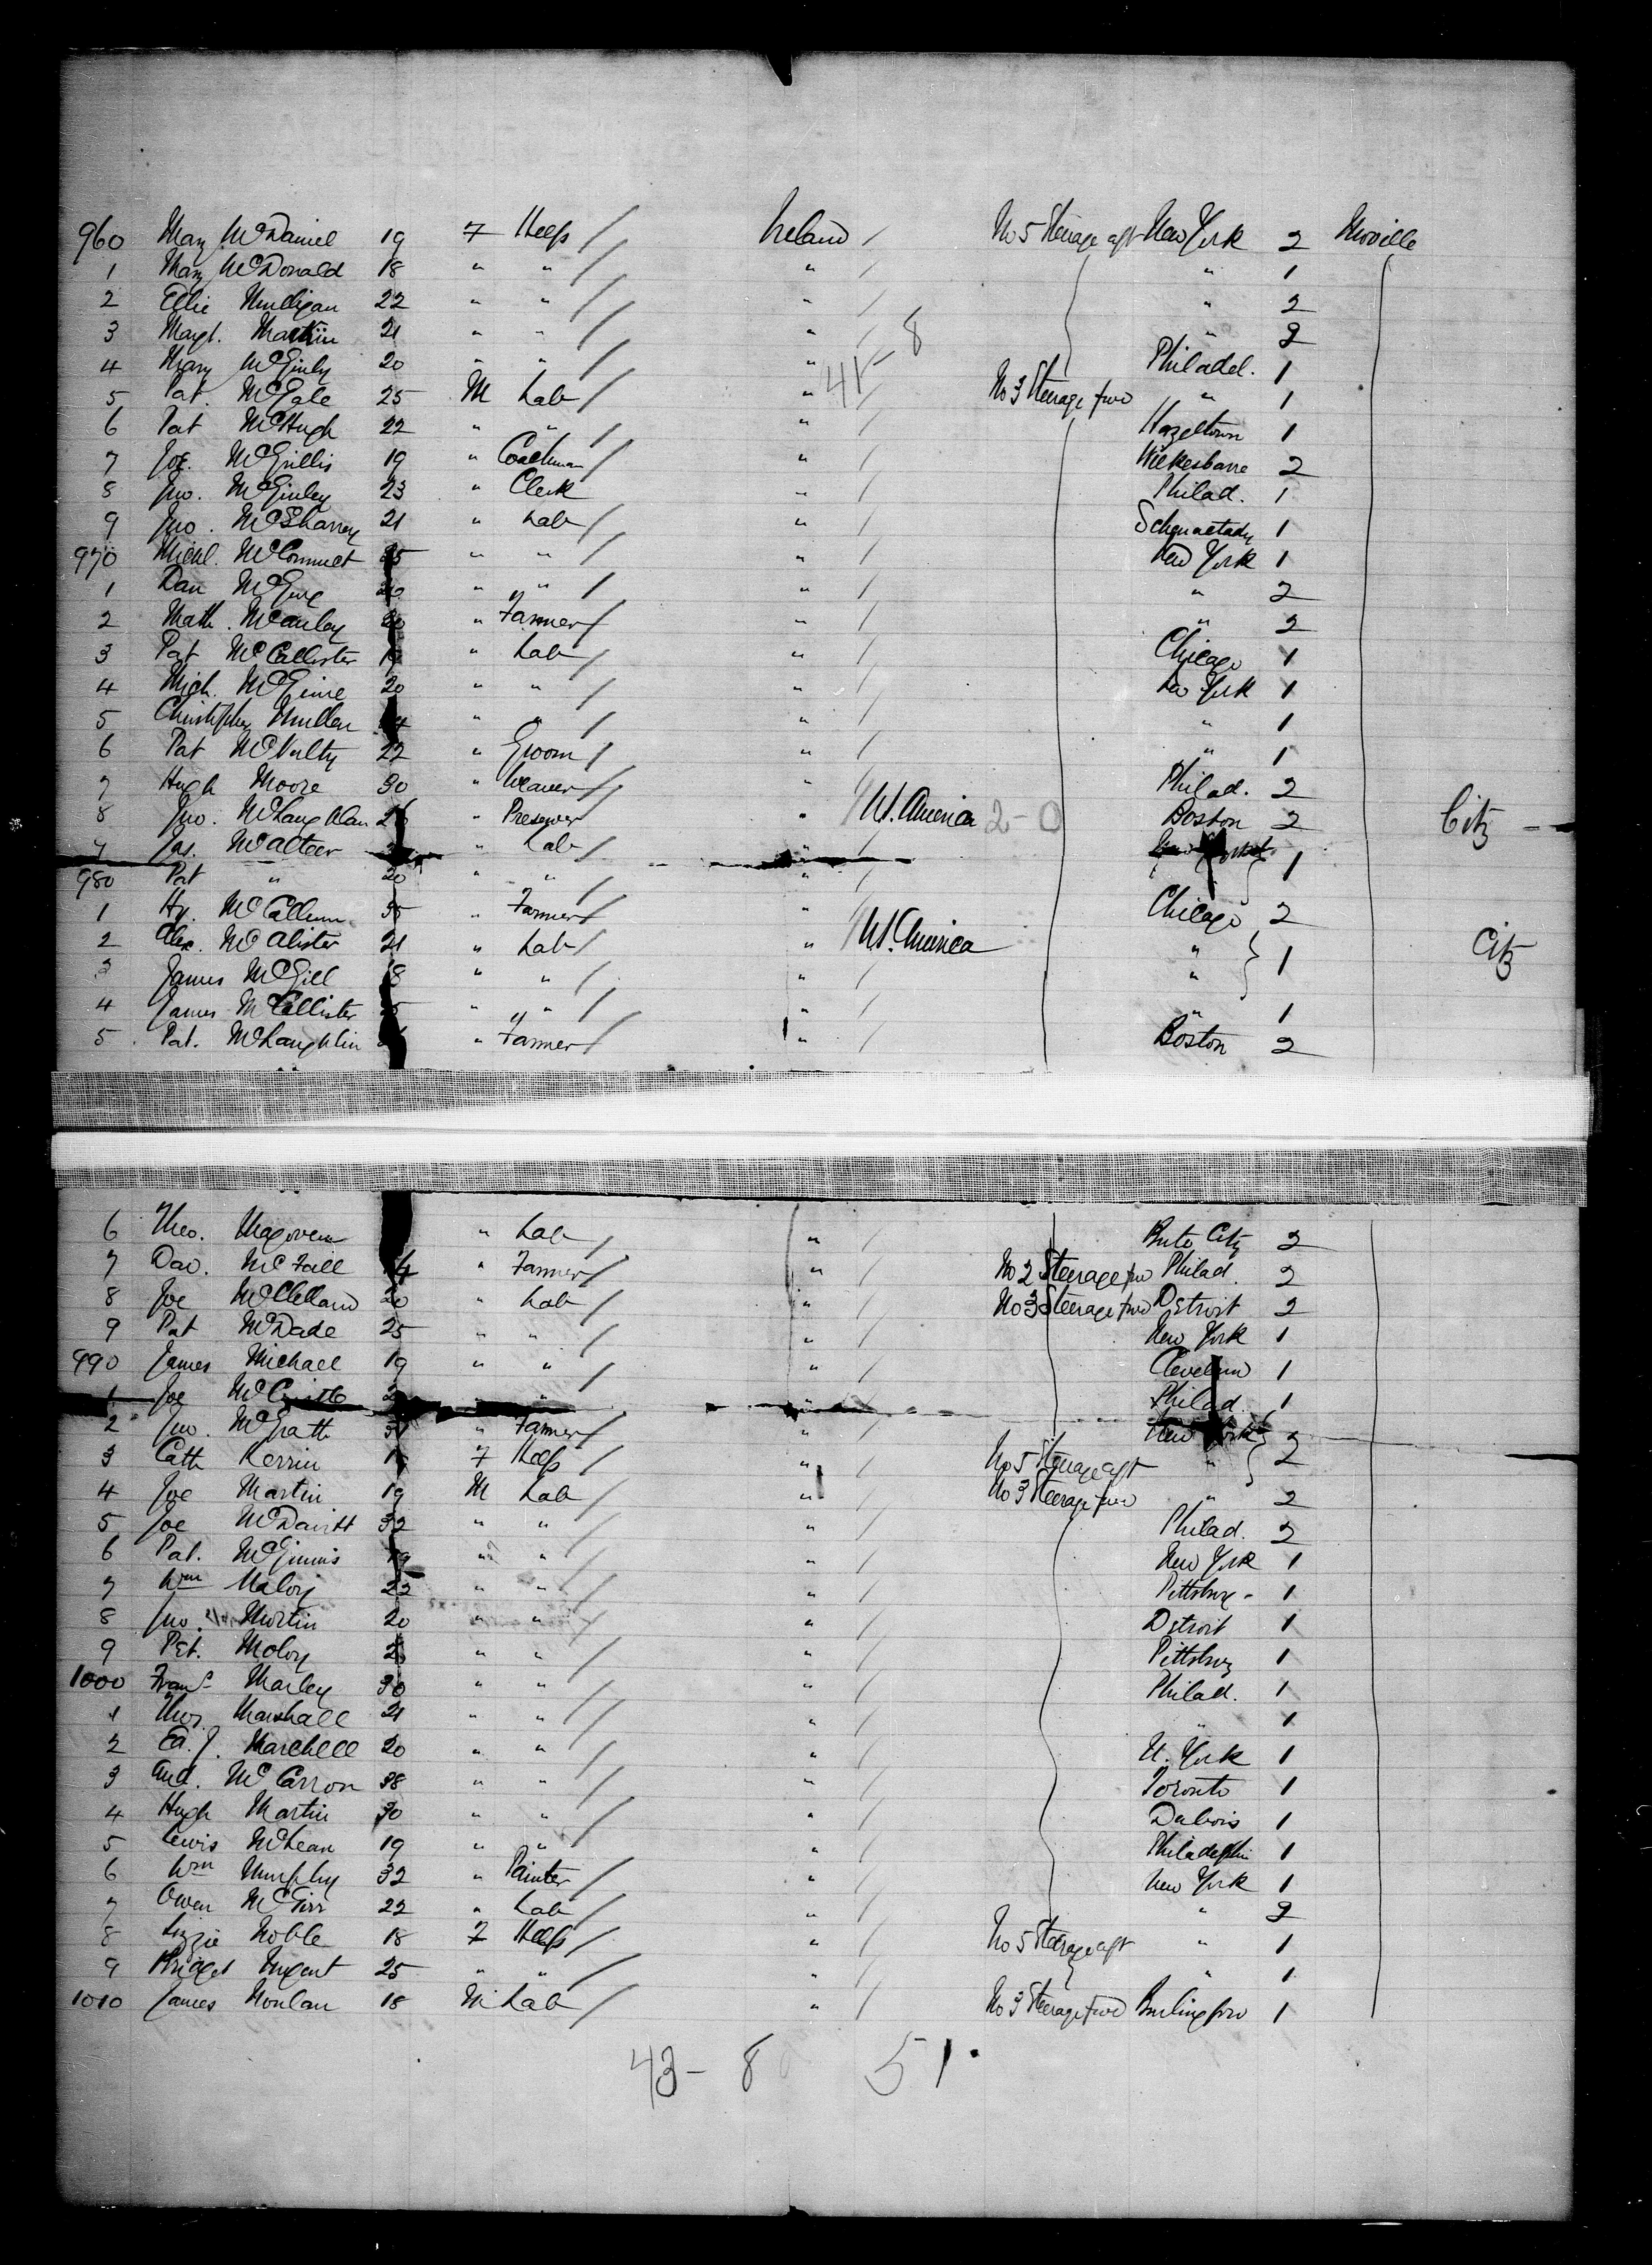 960 Mary McDaniel 19 F Help / Ireland / No 5 Steerage aft New York 2 Moville
1 Mary McDonald 18 " " / " / " 1
2 Ellie Mulligan 22 " " / " / " 2
3 Margt. Martin 21 " " / " / " 2
4 Mary McGinly 20 " " / " / Philadel. 1
41-8
5 Pat. McGale 25 M Lab / " / No 3 Steerage fwd " 1
6 Pat McHugh 22 " " / " / Hazeltown 1
7 Joe. McGillis 19 " Coachman / " / Wilkesbarre 2
8 Jno. McGinley 23 " Clerk " / Philad. 1
9 Jno. McSharry 21 " Lab / " / Schenectady 1
970 Michl. 35 " " / " / New York 1
1 Dan " " / " / " 2
2 Math. McAulay " Farmer / " / " 2
3 Pat McCallister " Lab / " / Chicago 1
4 Mich. 20 " " / " / New York 1
5 Christopher Mullen " " / " / " 1
6 Pat McNulty 22 " Groom / " / " 1
7 Hugh Moore 30 " Weaver / " / Philad. 2
8 Jno. McLaughlan 26 " Preserver " / N. America 2-0 Boston 2 Citz -
9 Jas. McAteer " Lab / " / 1
980 Pat " 20 " " / " /
1 Hy. McCallum 35 " Farmer / " / Chicago 2
2 Alex. McAlister 21 " Lab / " / N. America " 1 Citz
3 James McGill 18 " " / " / "
4 James McCallister " " / " / " 1
5 Pat. McLaughlin " Farmer / " / Boston 2
6 Theo. Magovern " Lab / " / City 2
7 Dav. McFall " Farmer / " / No 2 Steerage fwd Philad. 2
8 Joe McClelland 20 " Lab / " / No 3 Steerage fwd Detroit 2
9 Pat McDade 25 " " / " / New York 1
990 James Michael 19 " " / " / Cleveland 1
1 Joe " " Philad. 1
2 Jno. McGrath " Farmer / " / New York 2
3 Cath Kerrin F Help / " / No 5 Steerage aft " 2
4 Joe Martin 19 M Lab / " / No 3 Steerage fwd " 2
5 Joe McDavitt 32 " " / " / Philad. 2
6 Pat. McGinnis 19 " " / " / New York 1
7 Wm Maloy 22 " " / " / Pittsburg - 1
8 Jno. Martin 20 " " / " / Detroit 1
9 Pet. Moloy " " / " / Pittsburg 1
1000 Frans Marley 30 " " / " / Philad. 1
1 Thos. Marshall 21 " " / " / " 1
2 Ed. J. Marchell 20 " " / " / N. York 1
3 And. McCarron 38 " " / " / Toronto 1
4 Hugh Martin 30 " " / " / Dubois 1
5 Lewis McLean 19 " " / " / Philadelphi 1
6 Wm Murphy 32 " Painter / " / New York 1
7 Owen McGirr 22 " Lab / " / " 2
8 Lizzie Noble 18 F Help / " / No 5 Steerage aft " 1
9 Bridget Nugent 25 " " / " / " 1
1010 James Nonlan 18 M Lab / " / No 3 Steerage fwd Burlington 1
43-8 51.